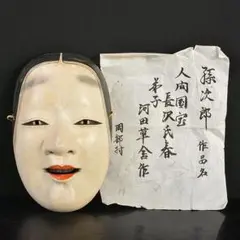 孫次郎
作品名
人間国宝
長沢氏春
弟子
河田草舎作